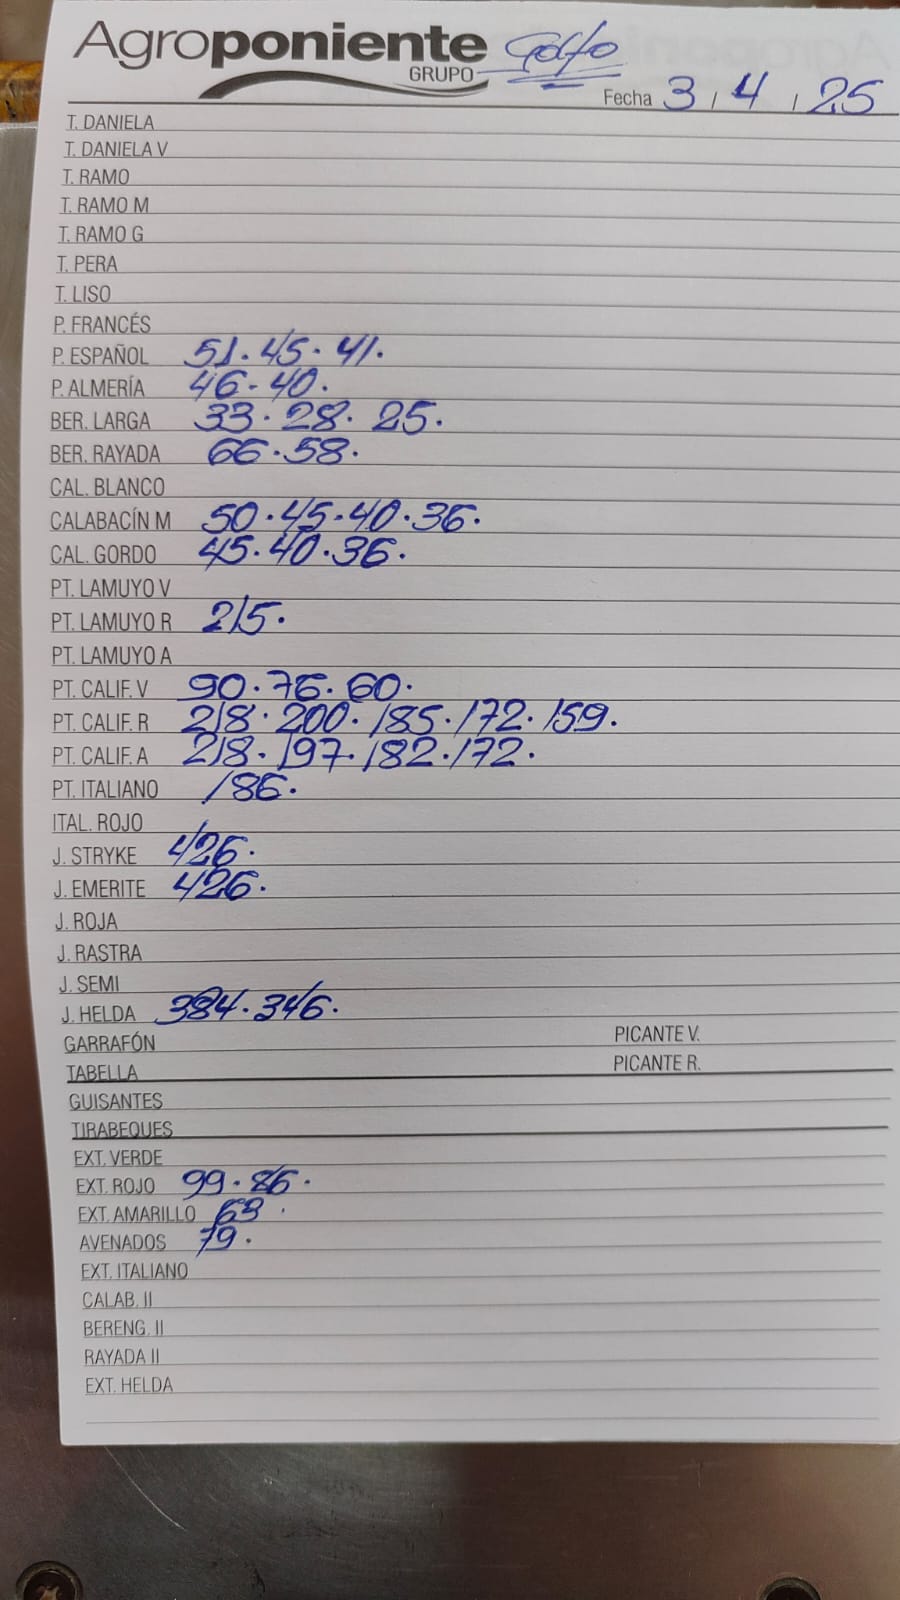 Agroponiente Golfo
GRUPO
Fecha 3 / 4 / 25
T. DANIELA
T. DANIELA V
T. RAMO
T. RAMO M
T. RAMO G
T. PERA
T. LISO
P. FRANCÉS
P. ESPAÑOL 51. 45. 41.
P. ALMERÍA 46. 40.
BER. LARGA 33. 28. 25.
BER. RAYADA 66. 58.
CAL. BLANCO
CALABACÍN M 50. 45. 40. 36.
CAL. GORDO 45. 40. 36.
PT. LAMUYO V
PT. LAMUYO R 215.
PT. LAMUYO A
PT. CALIF. V 90. 76. 60.
PT. CALIF. R 218. 200. 185. 172. 159.
PT. CALIF. A 218. 197. 182. 172.
PT. ITALIANO 186.
ITAL. ROJO
J. STRYKE 426.
J. EMERITE 426.
J. ROJA
J. RASTRA
J. SEMI
J. HELDA 384. 346.
GARRAFÓN PICANTE V.
TABELLA PICANTE R.
GUISANTES
TIRABEQUES
EXT. VERDE
EXT. ROJO 99. 86.
EXT. AMARILLO 63.
AVENADOS 79.
EXT. ITALIANO
CALAB. II
BERENG. II
RAYADA II
EXT. HELDA